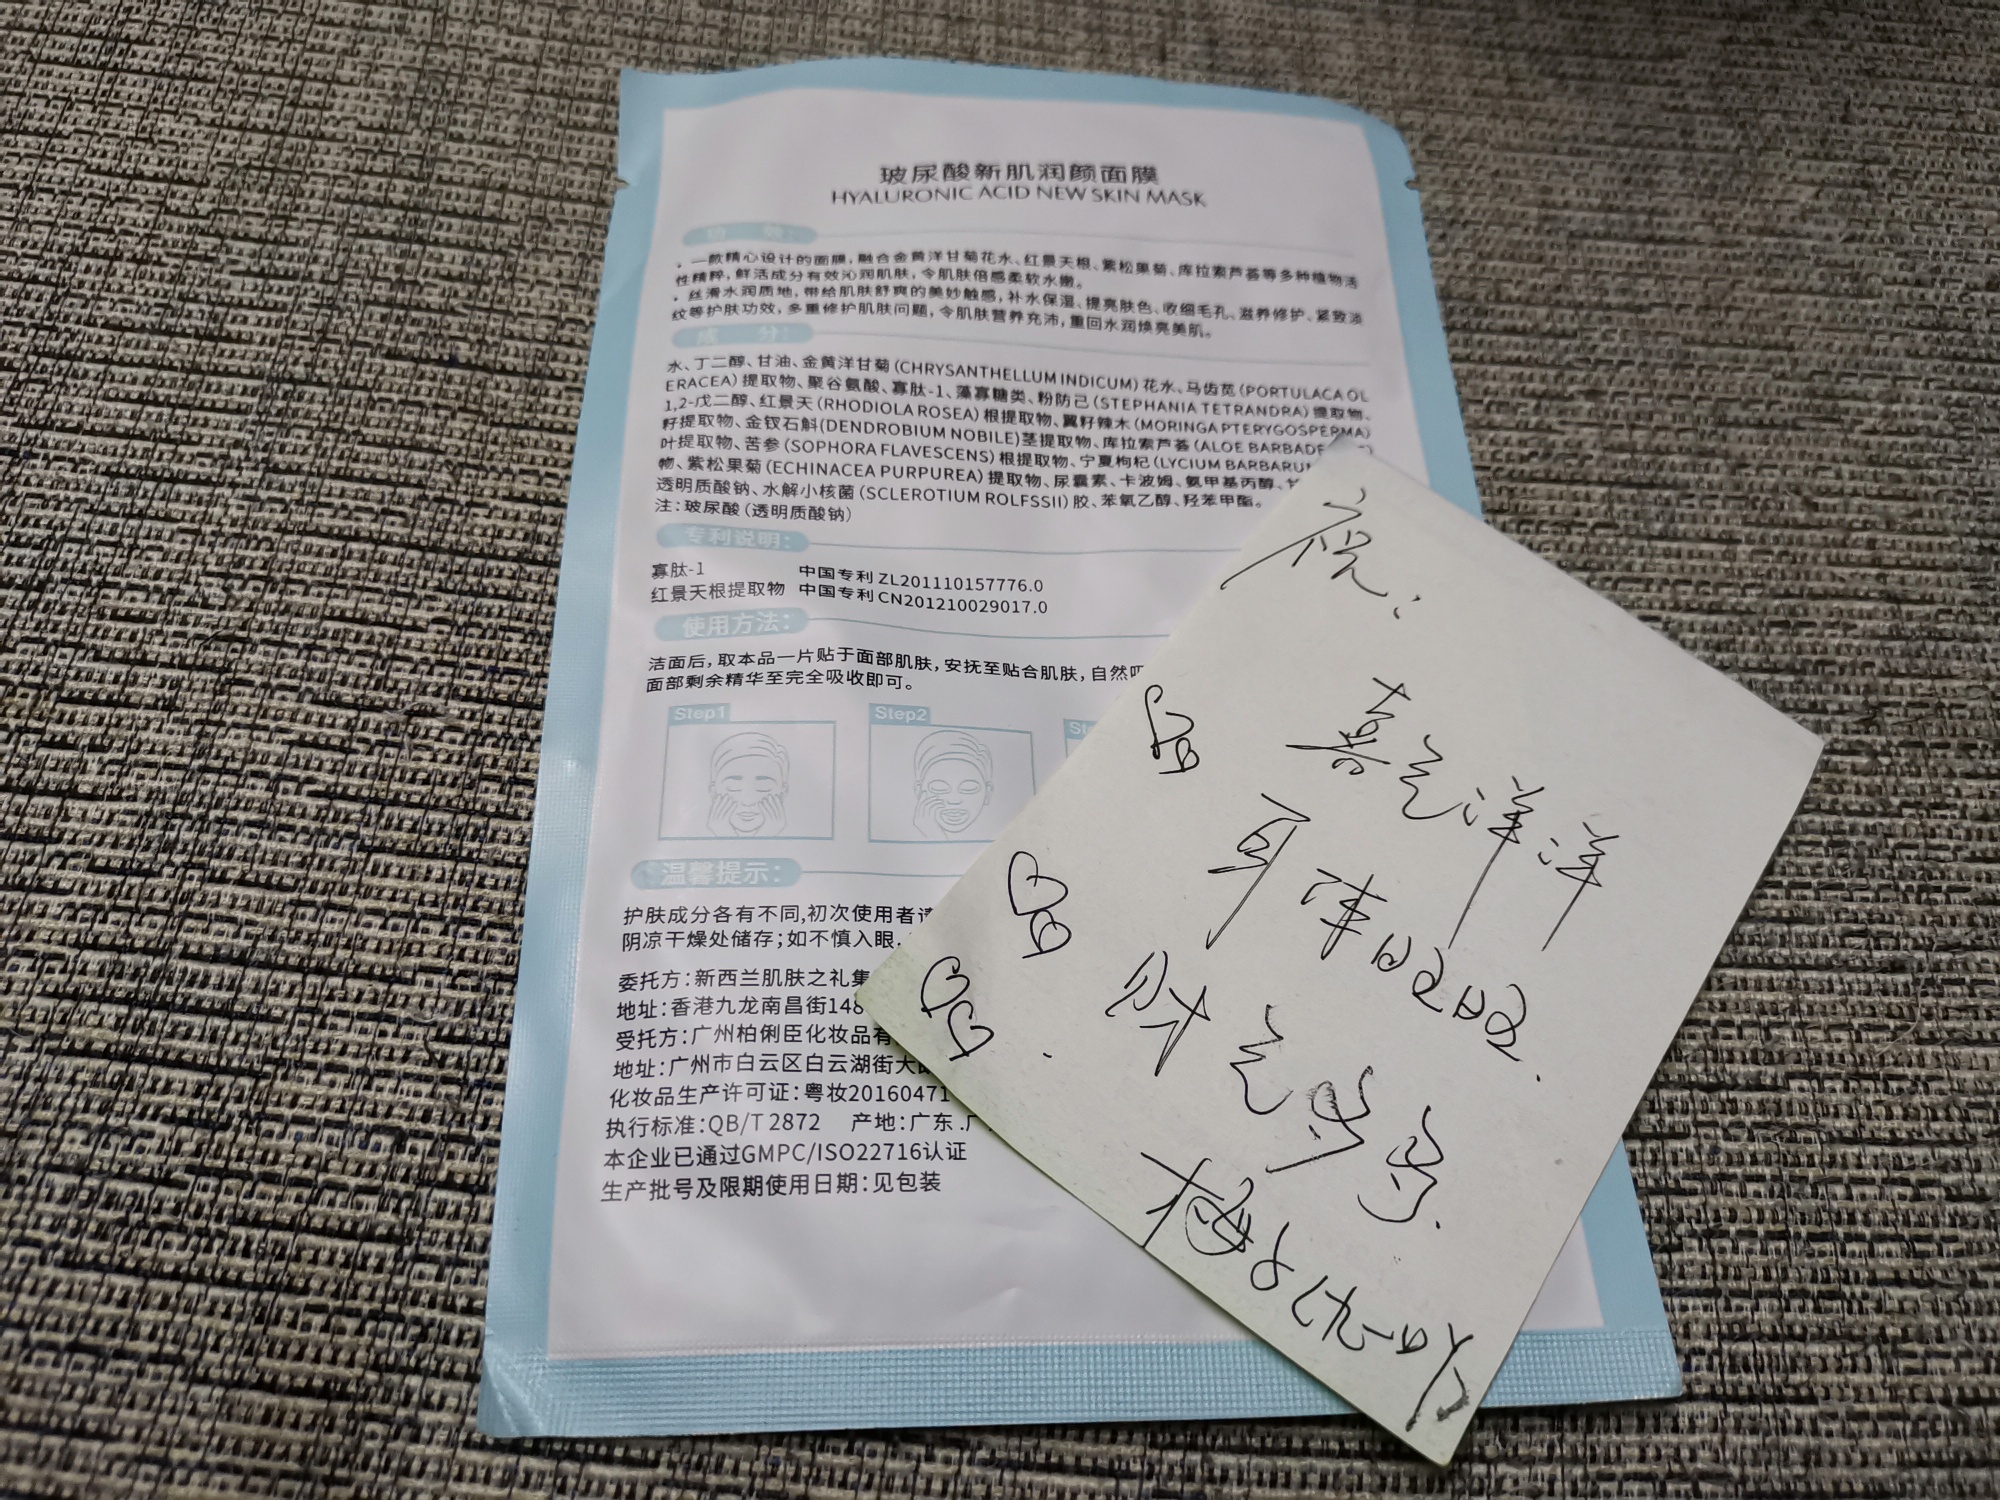 玻尿酸新肌润颜面膜
HYALURONIC ACID NEW SKIN MASK
功 效:
. 一款精心设计的面膜,融合金黄洋甘菊花水、红景天根、紫松果菊、库拉索芦荟等多种植物活
性精粹,鲜活成分有效沁润肌肤,令肌肤倍感柔软水嫩。
. 丝滑水润质地,带给肌肤舒爽的美妙触感,补水保湿、提亮肤色、收细毛孔、滋养修护、紧致淡
纹等护肤功效,多重修护肌肤问题,令肌肤营养充沛,重回水润焕亮美肌。
成 分:
水、丁二醇、甘油、金黄洋甘菊(CHRYSANTHELLUM INDICUM)花水、马齿苋(PORTULACA OL
ERACEA)提取物、聚谷氨酸、寡肽-1、藻寡糖类、粉防己(STEPHANIA TETRANDRA)提取物、
1,2-戊二醇、红景天(RHODIOLA ROSEA)根提取物、翼籽辣木(MORINGA PTERYGOSPERMA)
籽提取物、金钗石斛(DENDROBIUM NOBILE)茎提取物、库拉索芦荟(ALOE BARBADE
叶提取物、苦参(SOPHORA FLAVESCENS)根提取物、宁夏枸杞(LYCIUM BARBARU
物、紫松果菊(ECHINACEA PURPUREA)提取物、尿囊素、卡波姆、氨甲基丙醇、
透明质酸钠、水解小核菌(SCLEROTIUM ROLFSSII)胶、苯氧乙醇、羟苯甲酯。
注:玻尿酸(透明质酸钠)
专利说明:
寡肽-1 中国专利 ZL201110157776.0
红景天根提取物 中国专利 CN201210029017.0
使用方法:
洁面后,取本品一片贴于面部肌肤,安抚至贴合肌肤,自然
面部剩余精华至完全吸收即可。
Step1 Step2 St
温馨提示:
护肤成分各有不同,初次使用者请
阴凉干燥处储存;如不慎入眼,
委托方:新西兰肌肤之礼集
地址:香港九龙南昌街148
受托方:广州柏俐臣化妆品有
地址:广州市白云区白云湖街大
化妆品生产许可证:粤妆20160471
执行标准:QB/T 2872 产地:广东.广
本企业已通过GMPC/ISO22716认证
生产批号及限期使用日期:见包装
祝:
喜气洋洋
财气